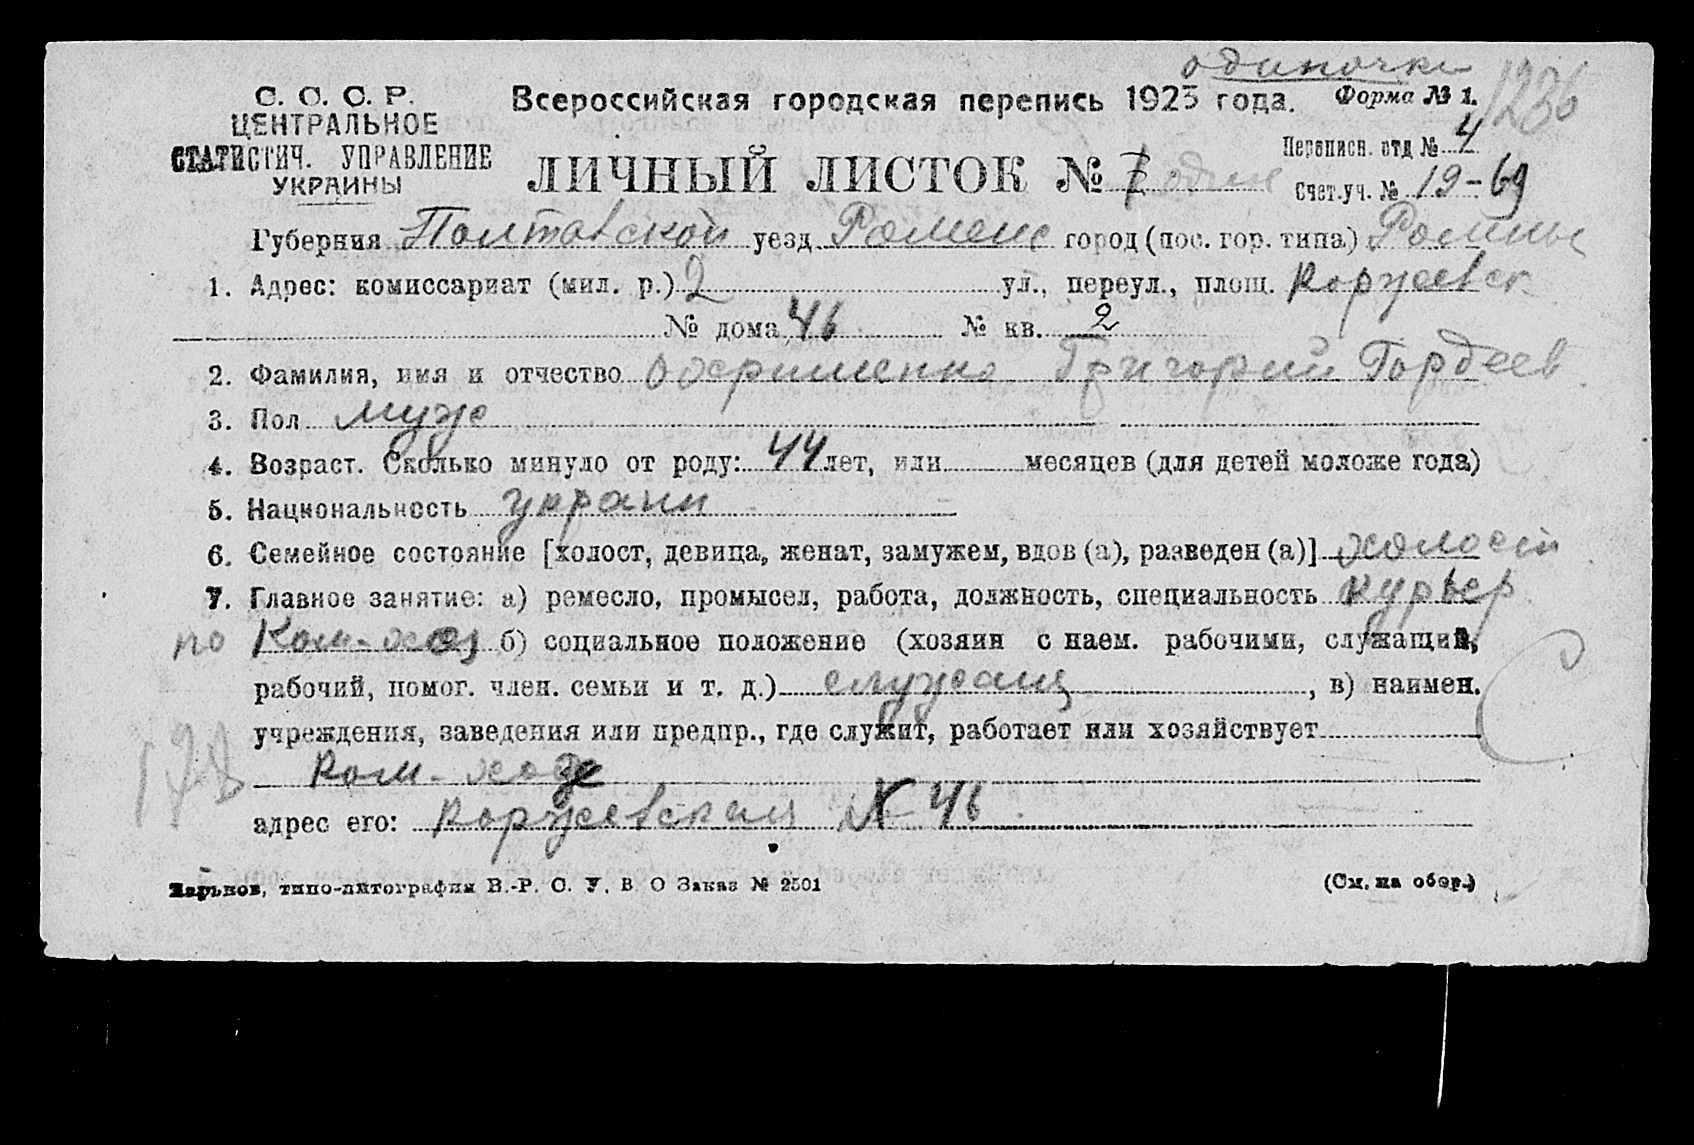 одиночки
С. С. С. Р.
ЦЕНТРАЛЬНОЕ
СТАТИСТИЧ. УПРАВЛЕНИЕ
УКРАИНЫ
Всероссийская городская перепись 1923 года. Форма № 1. 1236
Переписн. отд № 4
ЛИЧНЫЙ ЛИСТОК № 1 один
Счет.уч. № 19-69
Губерния Полтавской уезд Роменс город (пос. гор. типа) Ромны
1. Адрес: комиссариат (мил. р.) 2 ул., переул., площ. Коржевск
№ дома 46 № кв. 2
2. Фамилия, имя и отчество Григорий Гордеев
3. Пол муж
4. Возраст. Сколько минуло от роду: 44 лет, или месяцев (для детей моложе года)
5. Национальность украин
6. Семейное состояние [холост, девица, женат, замужем, вдов (а), разведен (а)] холост
7. Главное занятие: а) ремесло, промысел, работа, должность, специальность курьер
по Ком-хоз б) социальное положение (хозяин с наем. рабочими, служащий,
рабочий, помог. член. семьи и т. д.) служащ, в) наимен.
учреждения, заведения или предпр., где служит, работает или хозяйствует
Ком-хозе
адрес его: Коржевская № 46
Харьков, типо-литография В.-Р. С. У. В О Заказ № 2501
(См. на обор.)